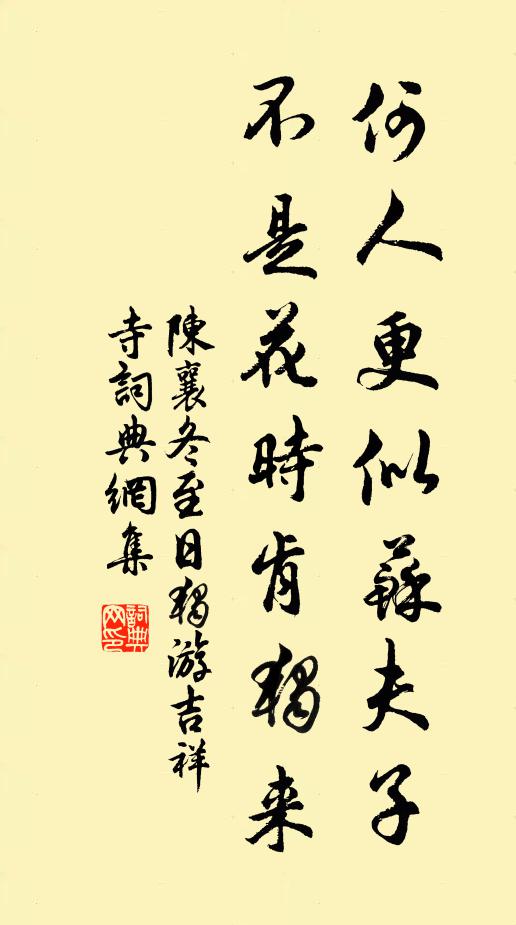 何人更似蘇夫子
不是花時肯獨来
陳襄冬至日獨游吉祥
寺詞典網集
詞典網印